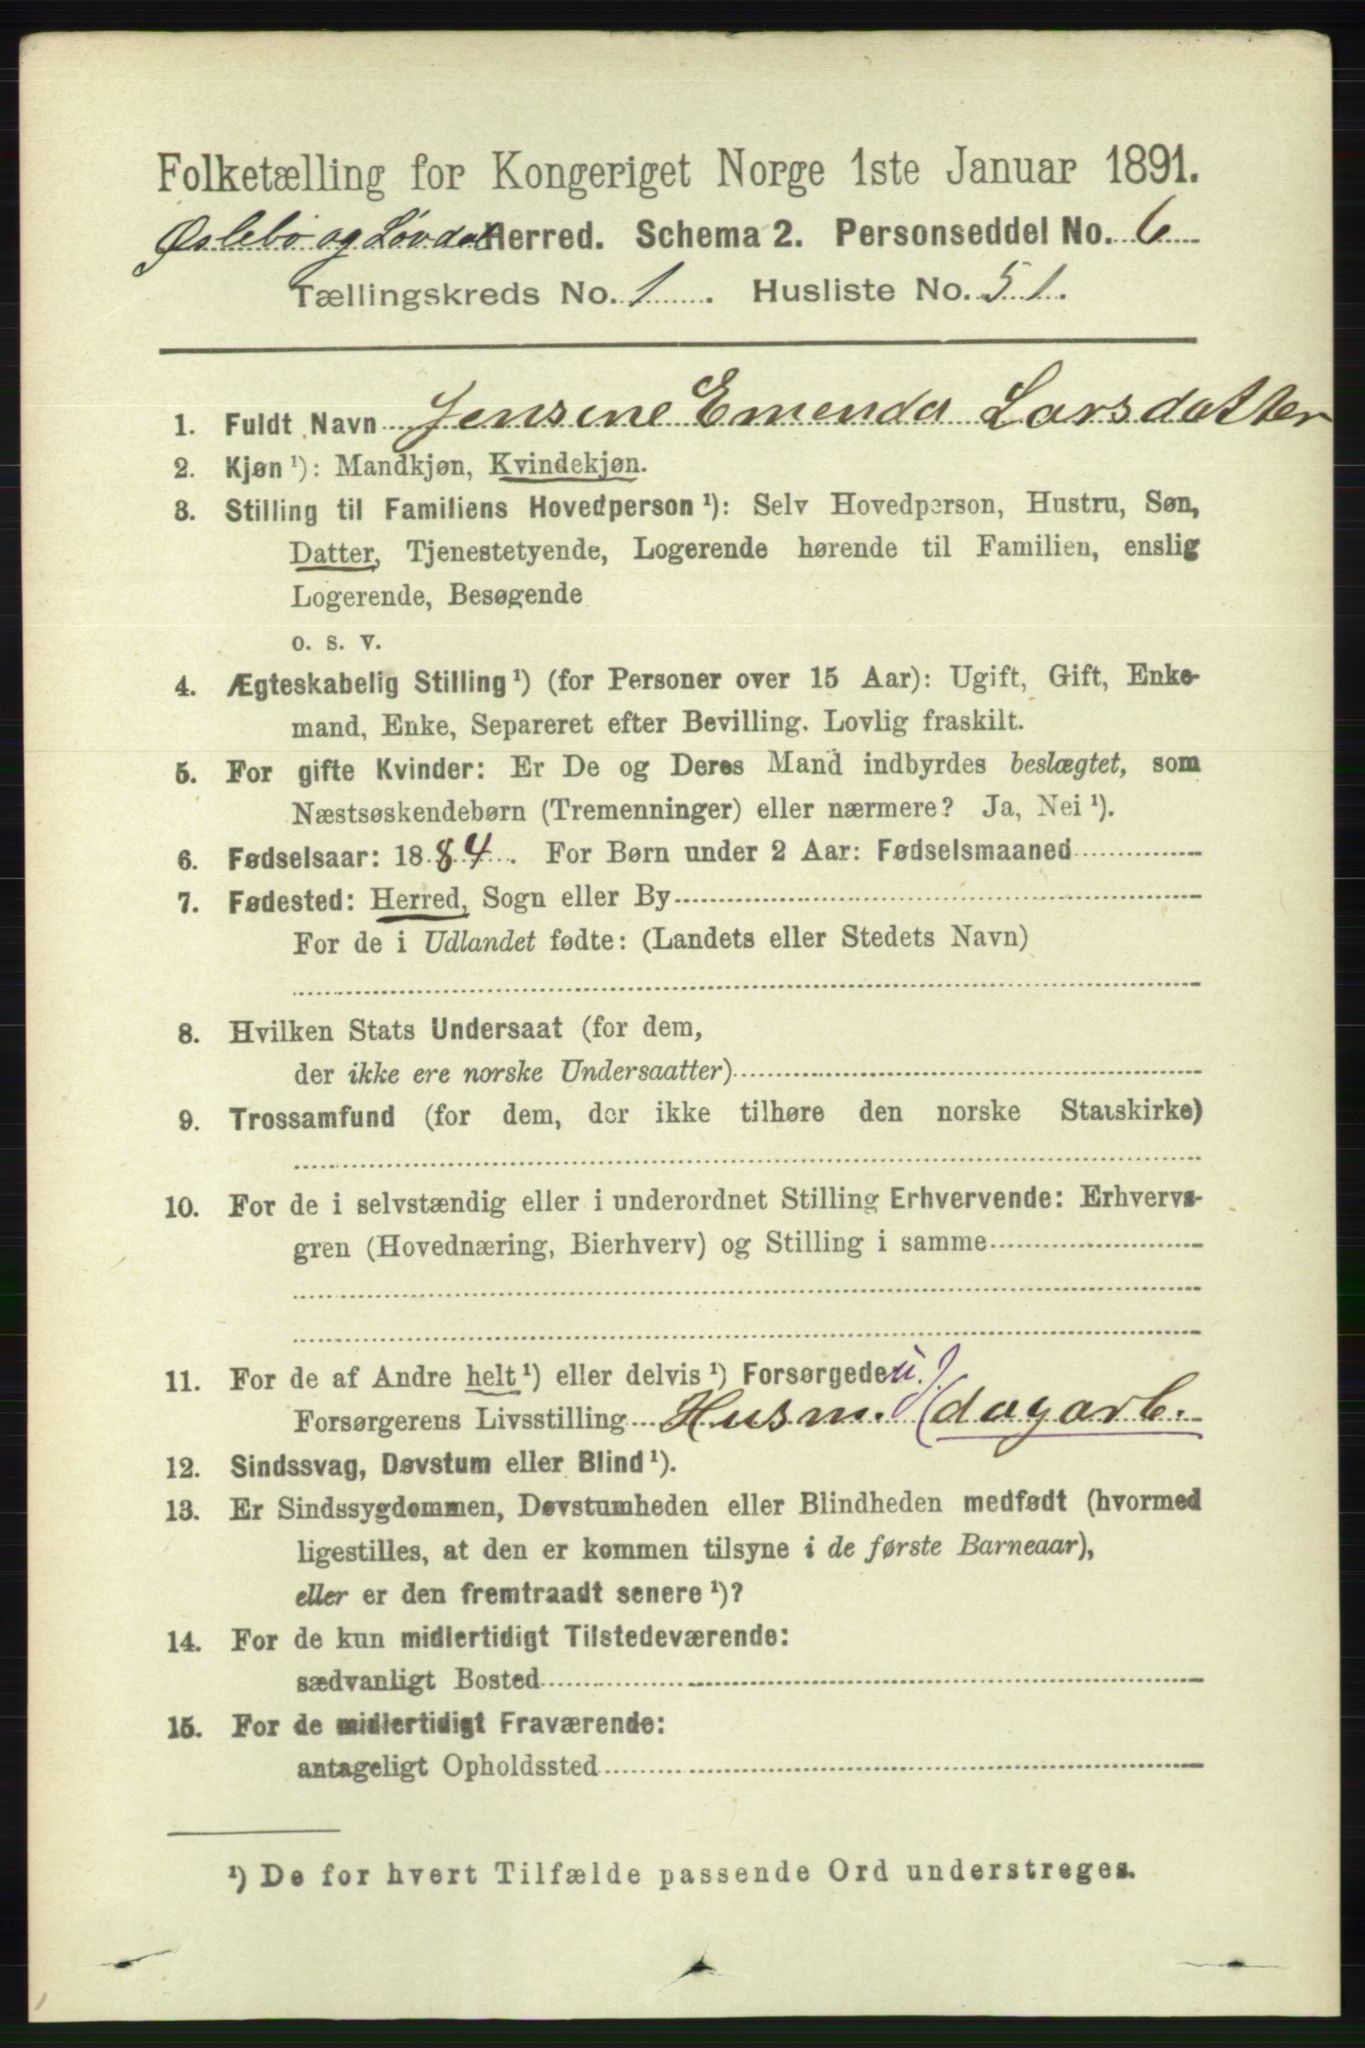 Folketælling for Kongeriget Norge 1ste Januar 1891.
Øslebø og Løvdal Herred. Schema 2. Personseddel No. 6
Tællingskreds No. 1. Husliste No. 51.
1. Fuldt Navn Jensine Emenda Larsdatter
2. Kjøn ¹): Mandkjøn, Kvindekjøn.
3. Stilling til Familiens Hovedperson ¹): Selv Hovedperson, Hustru, Søn,
Datter, Tjenestetyende, Logerende hørende til Familien, enslig
Logerende, Besøgende
o. s. v.
4. Ægteskabelig Stilling ¹) (for Personer over 15 Aar): Ugift, Gift, Enke-
mand, Enke, Separeret efter Bevilling. Lovlig fraskilt.
5. For gifte Kvinder: Er De og Deres Mand indbyrdes beslægtet, som
Næstsøskendebørn (Tremenninger) eller nærmere? Ja, Nei ¹).
6. Fødselsaar: 1884. For Børn under 2 Aar: Fødselsmaaned
7. Fødested: Herred, Sogn eller By
For de i Udlandet fødte: (Landets eller Stedets Navn)
8. Hvilken Stats Undersaat (for dem,
der ikke ere norske Undersaatter)
9. Trossamfund (for dem, der ikke tilhøre den norske Statskirke)
10. For de i selvstændig eller i underordnet Stilling Erhvervende: Erhvervs-
gren (Hovednæring, Bierhverv) og Stilling i samme
11. For de af Andre helt ¹) eller delvis ¹) Forsørgede: u. J.
Forsørgerens Livsstilling Husm. (dagarb.
12. Sindssvag, Døvstum eller Blind ¹).
13. Er Sindssygdommen, Døvstumheden eller Blindheden medfødt (hvormed
ligestilles, at den er kommen tilsyne i de første Barneaar),
eller er den fremtraadt senere ¹)?
14. For de kun midlertidigt Tilstedeværende:
sædvanligt Bosted
15. For de midlertidigt Fraværende:
antageligt Opholdssted
¹) De for hvert Tilfælde passende Ord understreges.